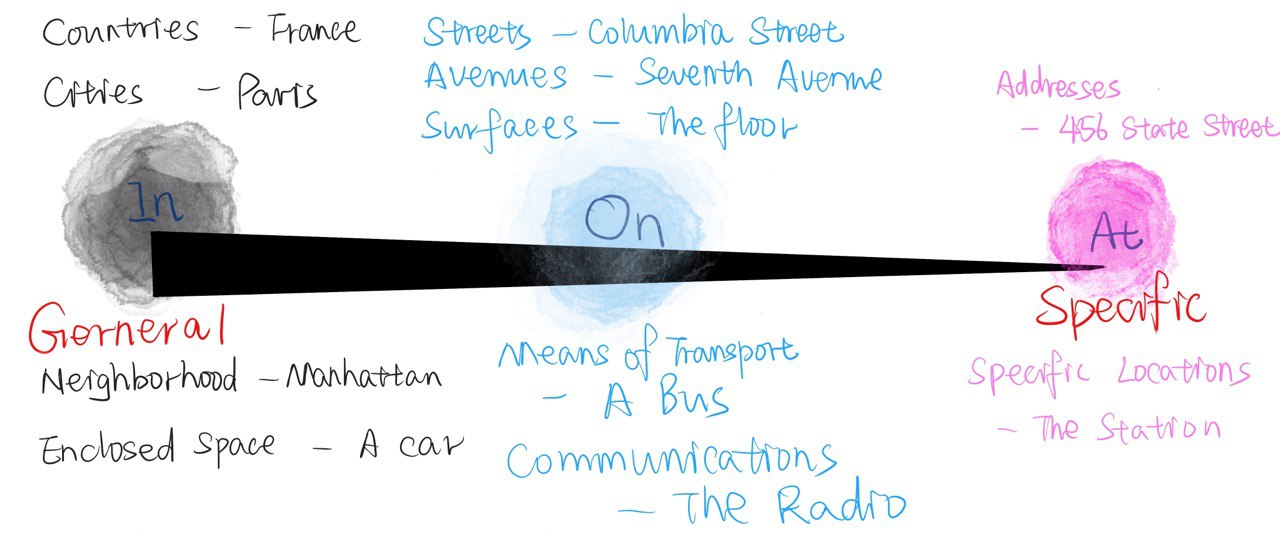 Countries - France
Cities - Paris
In
Gerneral
Neighborhood - Manhattan
Enclosed Space - A car
Streets - Columbia Street
Avenues - Seventh Avenue
Surfaces - The floor
On
Means of Transport
- A Bus
Communications
- The Radio
Addresses
- 456 State Street
At
Specific
Specific Locations
- The Station